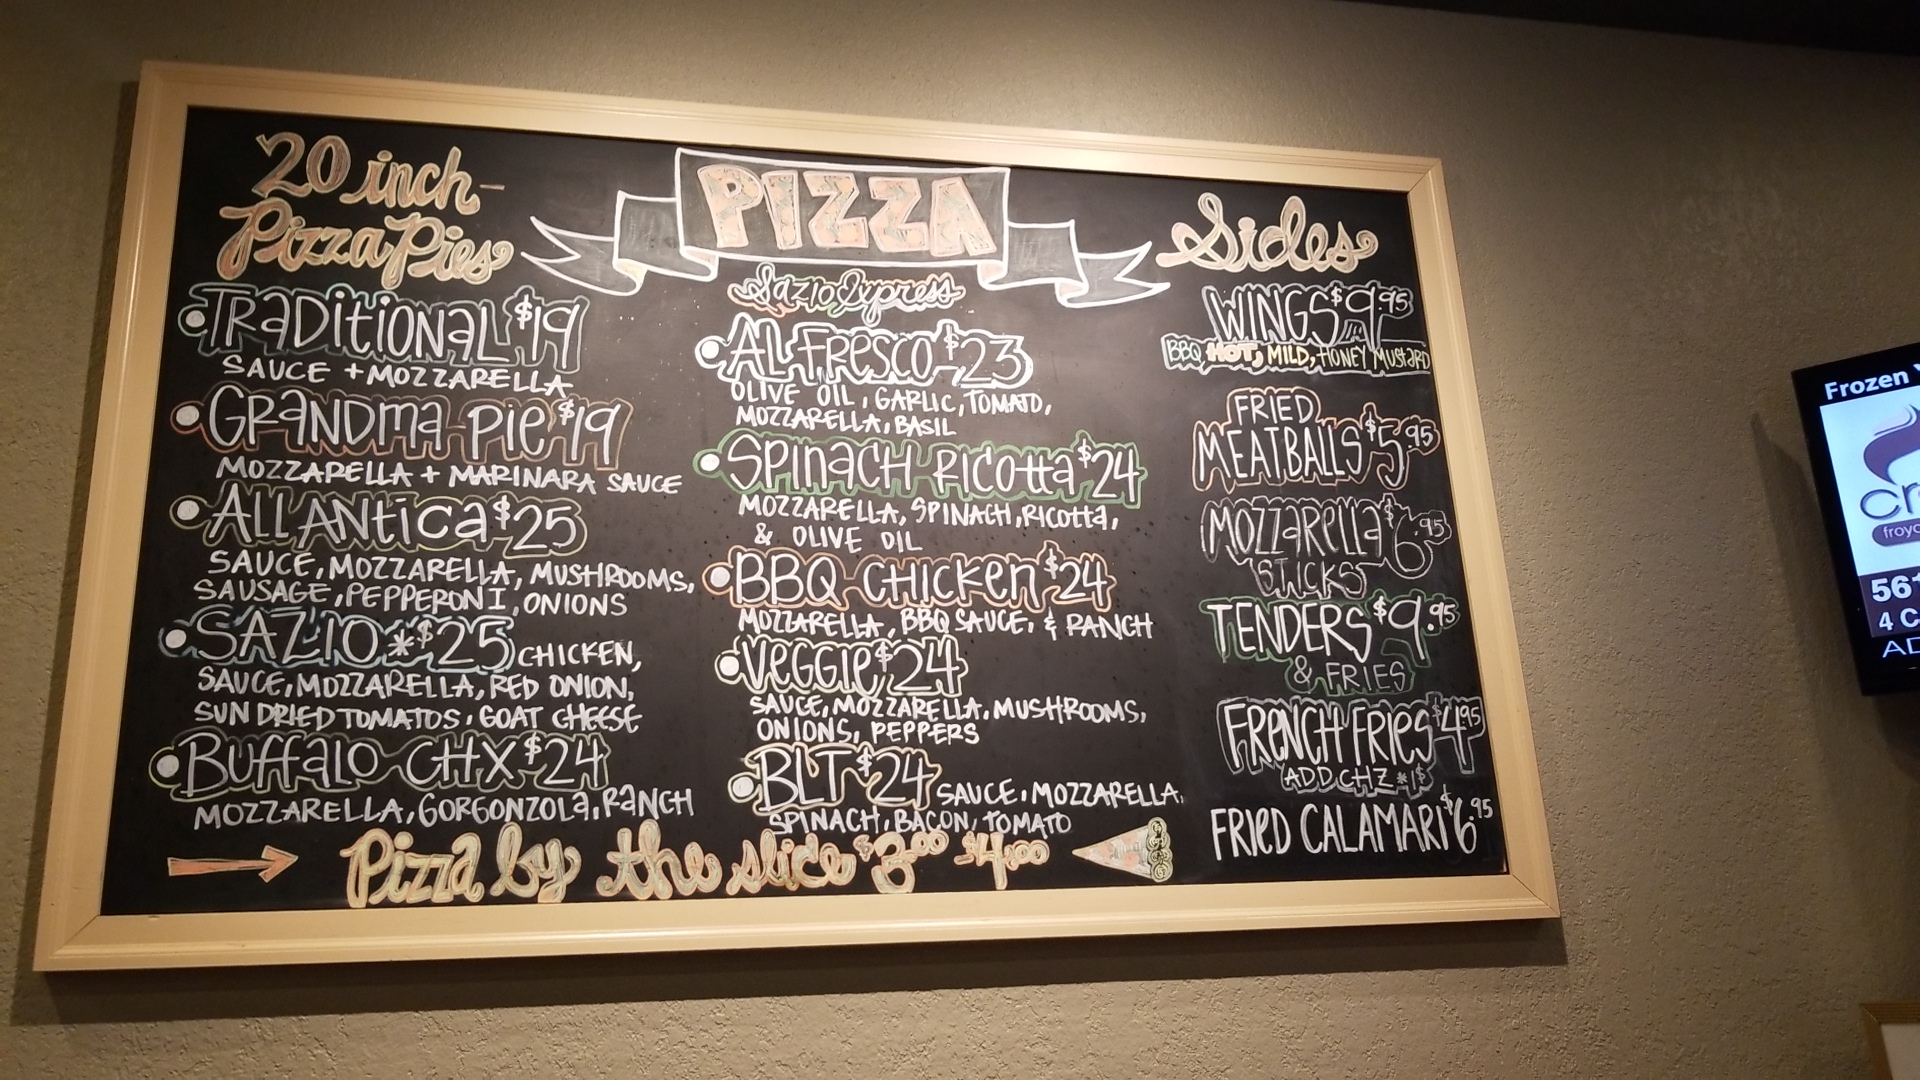 20 inch-
Pizza Pies
TRaDitiONAL $19
SAUCE + MOZZARELLA
GRaNDma Pie $19
MOZZARELLA + MARINARA SAUCE
ALLANtica $25
SAUCE, MOZZARELLA, MUSHROOMS,
SAUSAGE, PEPPERONI, ONIONS
SAZIO * $25 CHICKEN,
SAUCE, MOZZARELLA, RED ONION,
SUN DRIED TOMATOS, GOAT CHEESE
BUFFaLO CHX $24
MOZZARELLA, GORGONZOLa, RaNCH
PIZZA
Sazio Express
AL FResco $23
OLIVE OIL, GARLIC, TOMATO,
MOZZARELLA, BASIL
SPiNaCH Ricotta $24
MOZZARELLA, SPINACH, RICOtta,
& OLIVE OIL
BBQ CHicKen $24
MOZZARELLA, BBQ SAUCE, & RANCH
VeGGie $24
SAUCE, MOZZARELLA, MUSHROOMS,
ONIONS, PEPPERS
BLT $24 SAUCE, MOZZARELLA,
SPINACH, BACON, TOMATO
Pizza by the slice $3.00 $4.00
Sides
WINGS $9.95
BBQ, HOT, MILD, HONEY MUSTaRD
FRIED
MEATBALLS $5.95
MOZZaRella $6.95
STICKS
TENDERS $9.95
& FRIES
FRENCH FRIES $4.95
ADD CHZ *1$
FRIED CALAMARI $6.95
Frozen
froyo
4 C